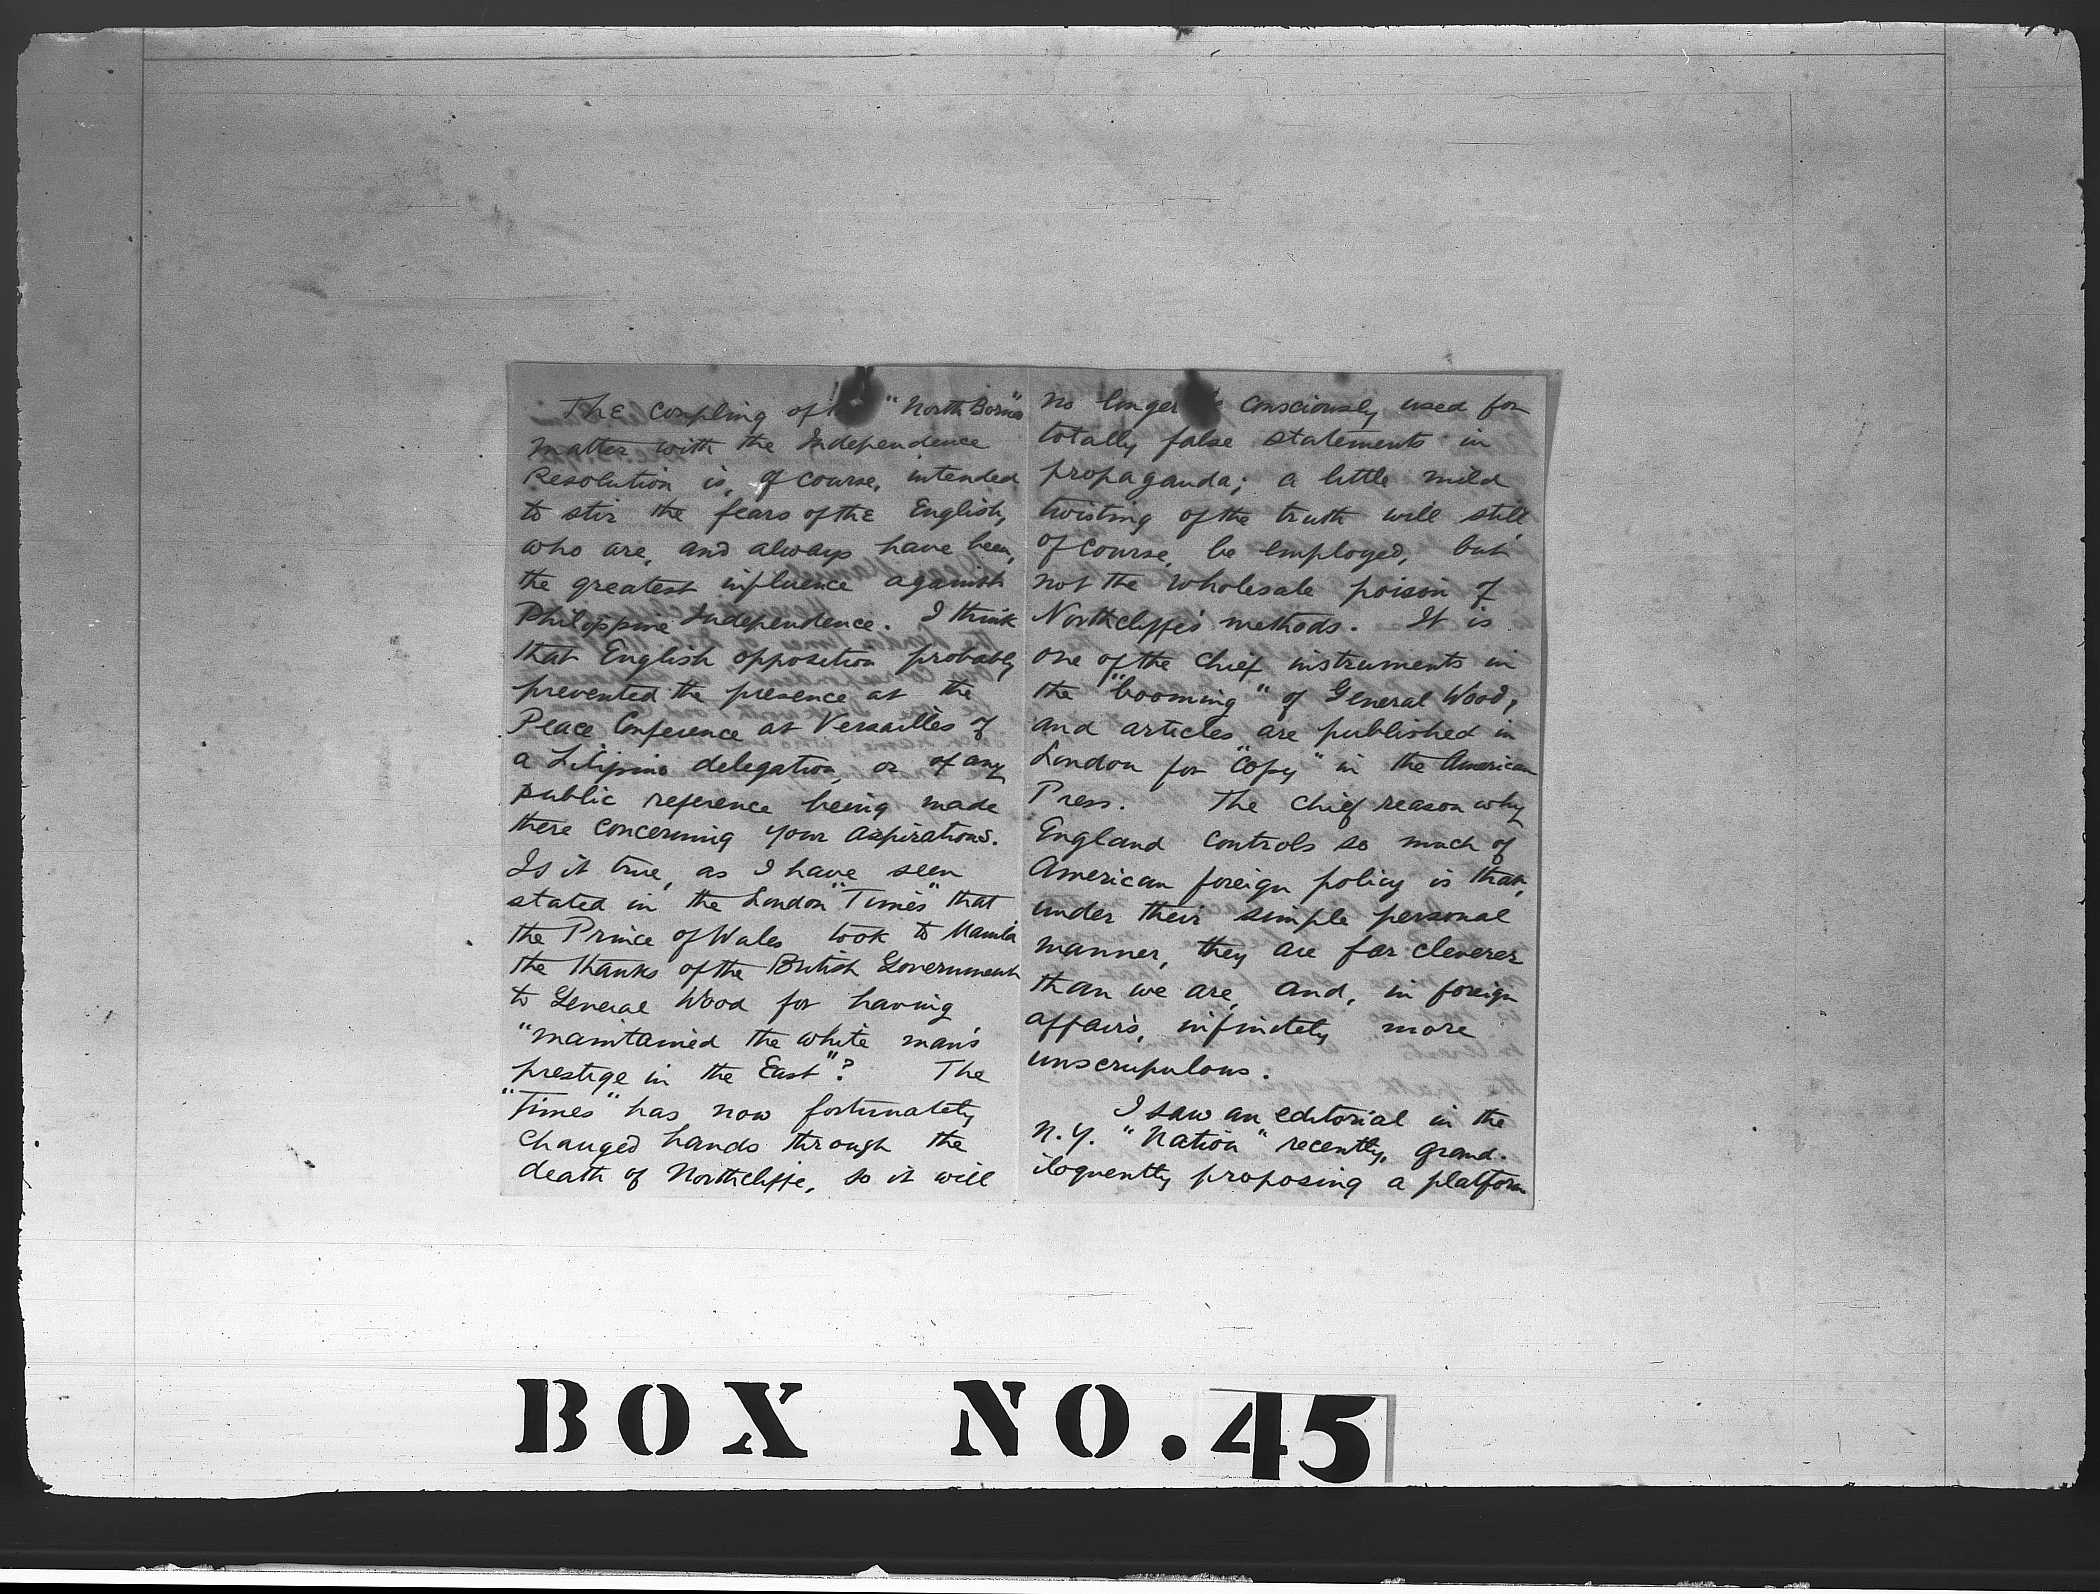 The coupling of "North Borneo"
matter with the Independence
Resolution is, of course, intended
to stir the fears of the English,
who are, and always have been,
the greatest influence against
Philippine Independence. I think
that English opposition probably
prevented the presence at the
Peace Conference at Versailles of
a Filipino delegation, or of any
public reference being made
there concerning your aspirations.
Is it true, as I have seen
stated in the London "Times" that
the Prince of Wales took to Manila
the thanks of the British Government
to General Wood for having
"maintained the white man's
prestige in the East"? The
"Times" has now fortunately
changed hands through the
death of Northcliffe, so it will
no longer be consciously used for
totally false statements in
propaganda; a little mild
twisting of the truth will still
of course, be employed, but
not the wholesale poison of
Northcliffe's methods. It is
one of the chief instruments in
the "booming" of General Wood,
and articles are published in
London for "copy" in the American
Press. The chief reason why
England controls so much of
American foreign policy is that,
under their simple personal
manner, they are far cleverer
than we are, and, in foreign
affairs, infinitely more
unscrupulous.
I saw an editorial in the
N.Y. "Nation" recently, grand-
iloquently proposing a platform
BOX NO. 45